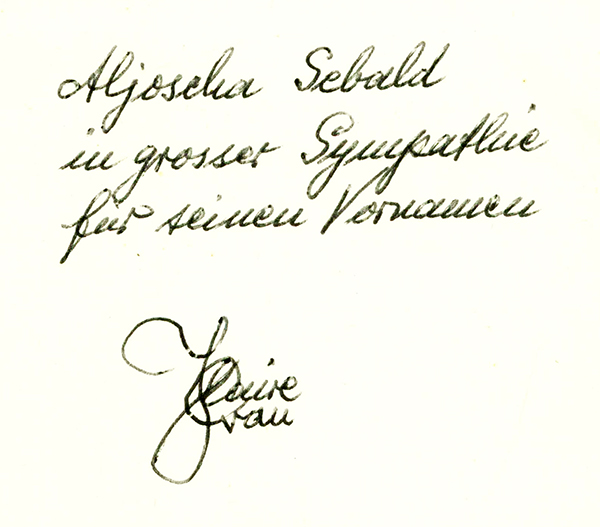 Aljoscha Sebald
in grosser Sympathie
für seinen Vornamen
Claire
Gran